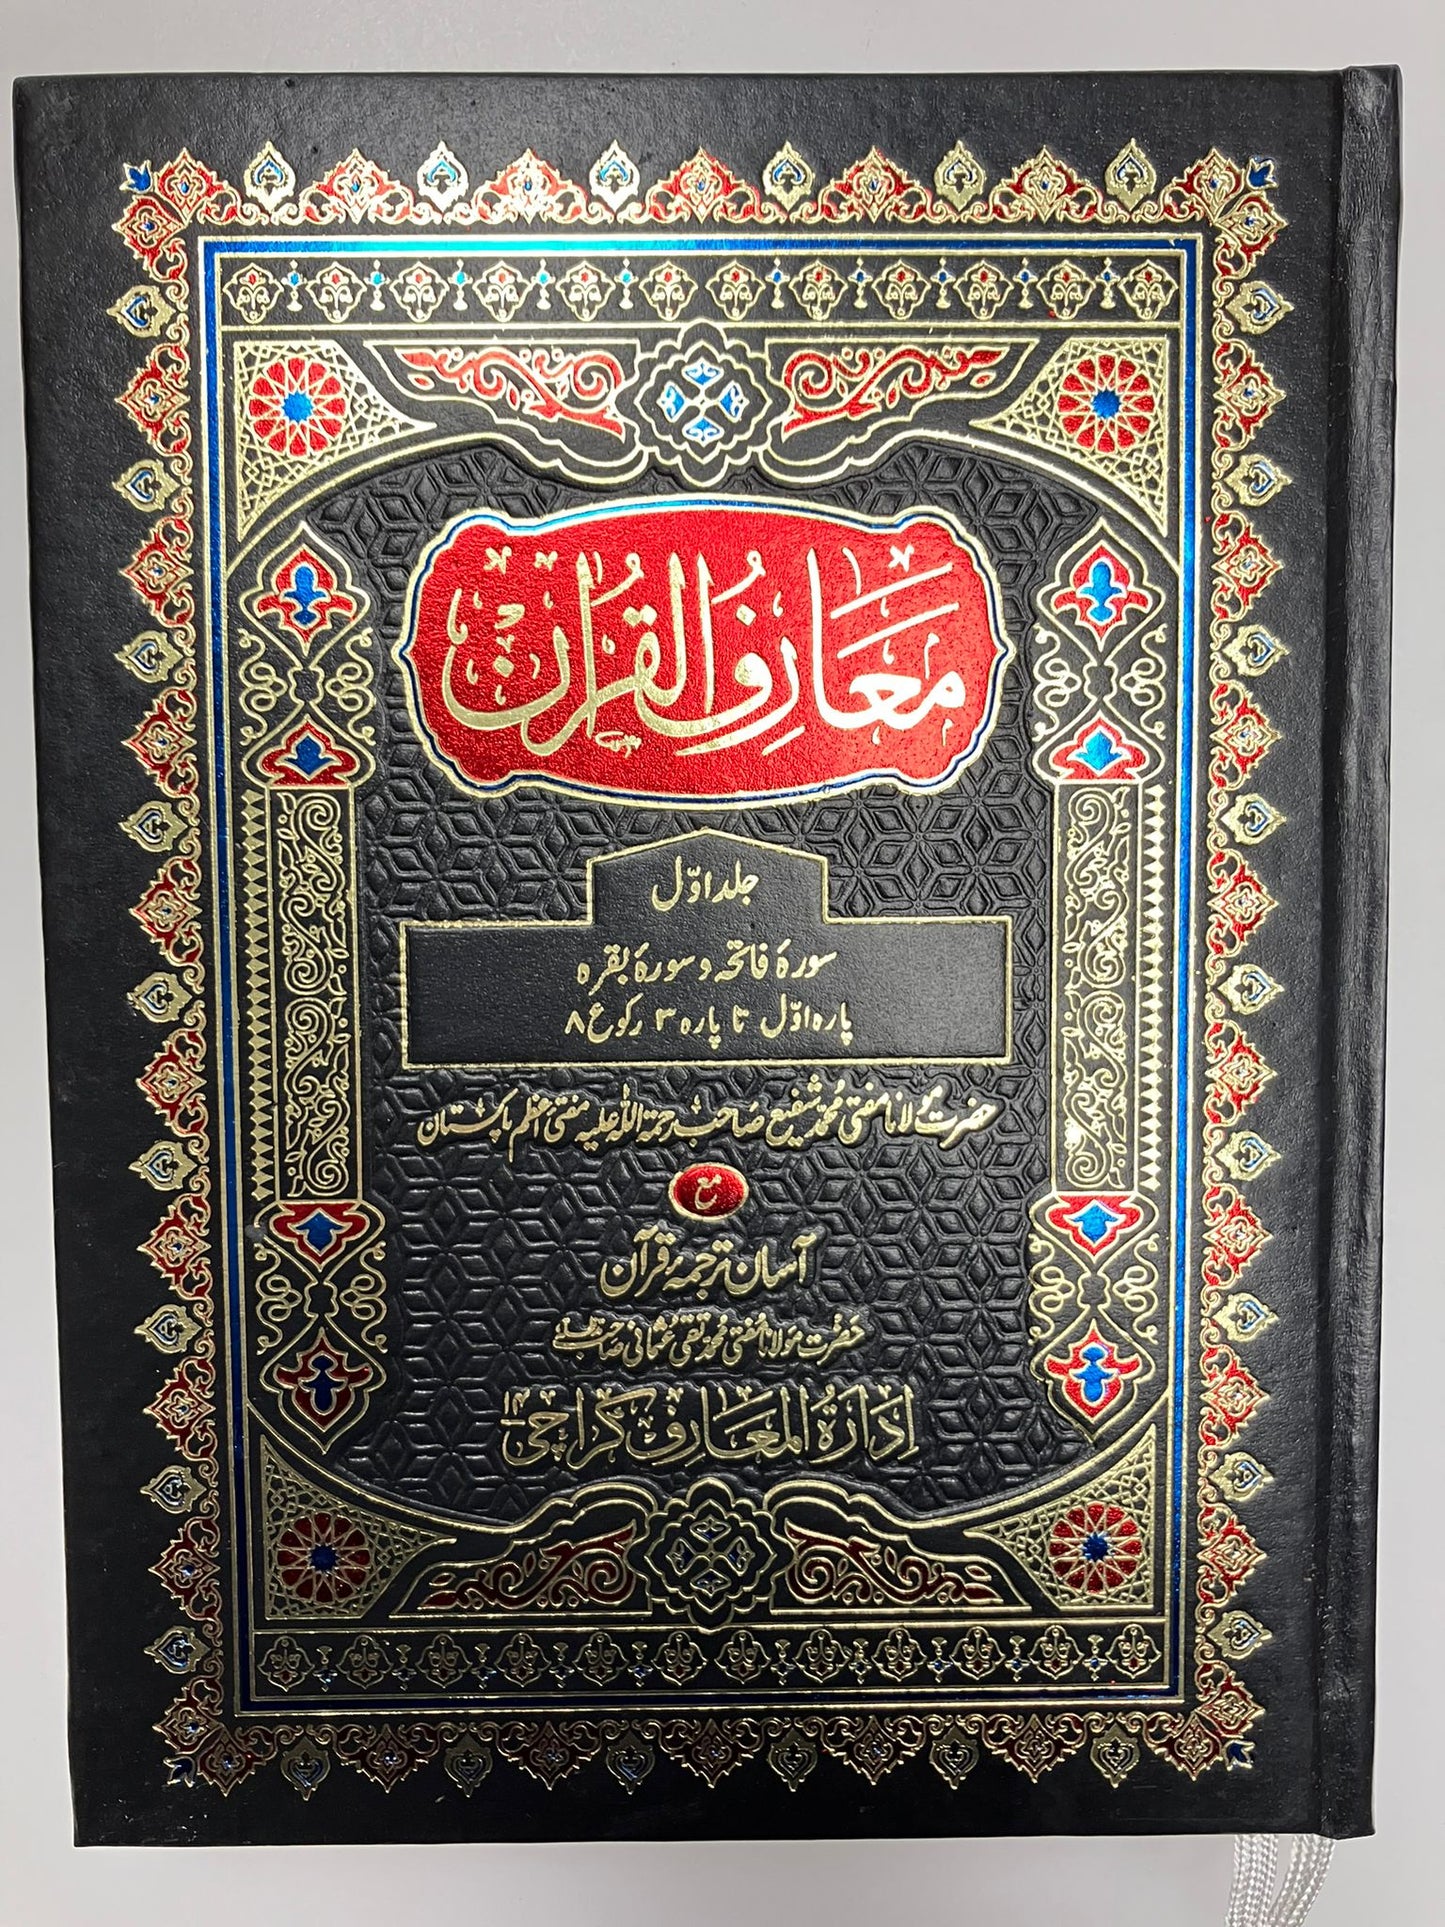 معارف القرآن
جلد اوّل
سورۂ فاتحہ و سورۂ بقرہ
پارہ اوّل تا پارہ ۳ رکوع ۸
حضرت مولانا مفتی محمد شفیع صاحب رحمۃ اللہ علیہ مفتیٔ اعظم پاکستان
مع
آسان ترجمۂ قرآن
حضرت مولانا مفتی محمد تقی عثمانی صاحب مدظلہم
اِدارۃ المعارف کراچی ۱۴